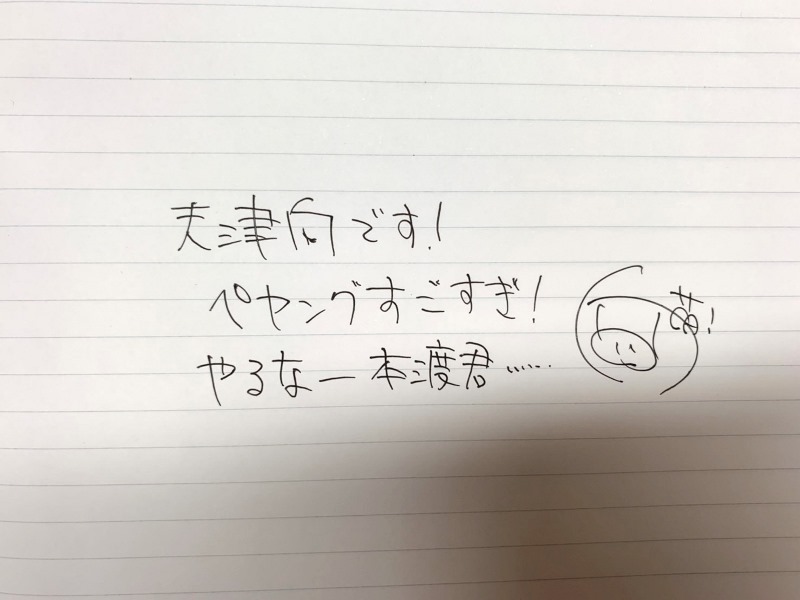 天津向です!
ペヤングすごすぎ!
やるなー本渡君……